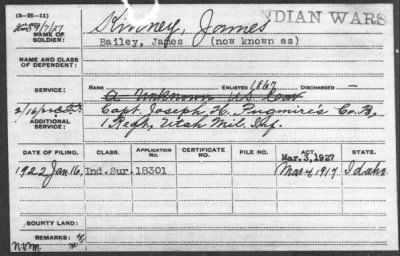 (3-2I-11)
Kinney, James INDIAN WARS
NAME OF SOLDIER:
Bailey, James (now known as)
NAME AND CLASS OF DEPENDENT:
SERVICE: RANK ENLISTED 1867 DISCHARGED
A Unknown US
Capt. Joseph H. Pugmire's Co. B,
ADDITIONAL SERVICE:
1 Regt, Utah Mil. Inf.
DATE OF FILING. CLASS. APPLICATION No. CERTIFICATE No. FILE No. ACT. STATE.
Mar. 3, 1927
1922 Jan 16, Ind. Sur. 18301 Mar 4, 1917 Idaho
BOUNTY LAND:
REMARKS: